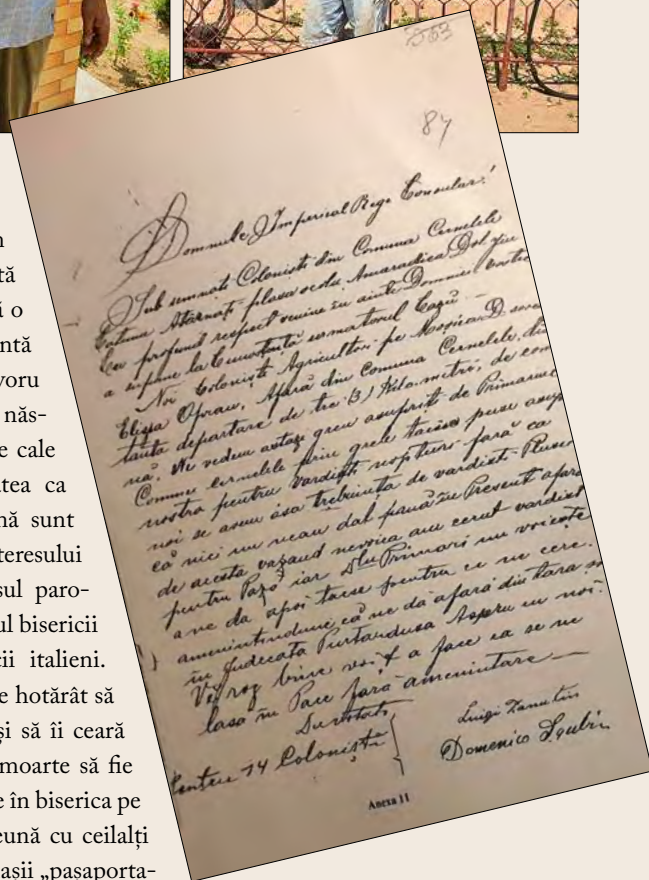 ă o
ntă
voru
năs-
e cale
atea ca
nă sunt
teresului
sul paro-
ul bisericii
cii italieni.
e hotărât să
și să îi ceară
moarte să fie
e în biserica pe
eună cu ceilalți
așii „pașaporta-
253
84
Domnule Imperial Rege Consular!
Sub semnați Coloniști din Comuna Cernelele
Cătuna Atârnați plasa ocolu Amaradica Dol
Cu profund respect venim în ainte Domniei Vostre
a espune la Cunostanta urmatorul Cazŭ
Noi Coloniști Agricultori pe Mosiea D
Elissa Opran, Afară din Comuna Cernelele,
departare de tre (3) Kilo metri, de
nă. Ne vedem astazi greu asupriti de Primarul
Comunei cernelele prin grele tacsse puse
nostra pentru Vardisti nopturi fară ca
noi se avem asa trebuinta de vardisti
că nici nu neau dat până în Present
de acesta vazand nevoiea am cerut vardisti
pentru Pază iar Dlu Primari nu voieste
a ne da apoi tacse pentru ce ne cere.
amenintindune că ne dă afară din tara
în judecata Purtandusa Aspru cu noi.
Vĕ rog bine voiți a face ca se ne
lasă în Pace fară amenintare
Pentru 14 Coloniști
Luigi Zanutin
Domenico
Anexa 11